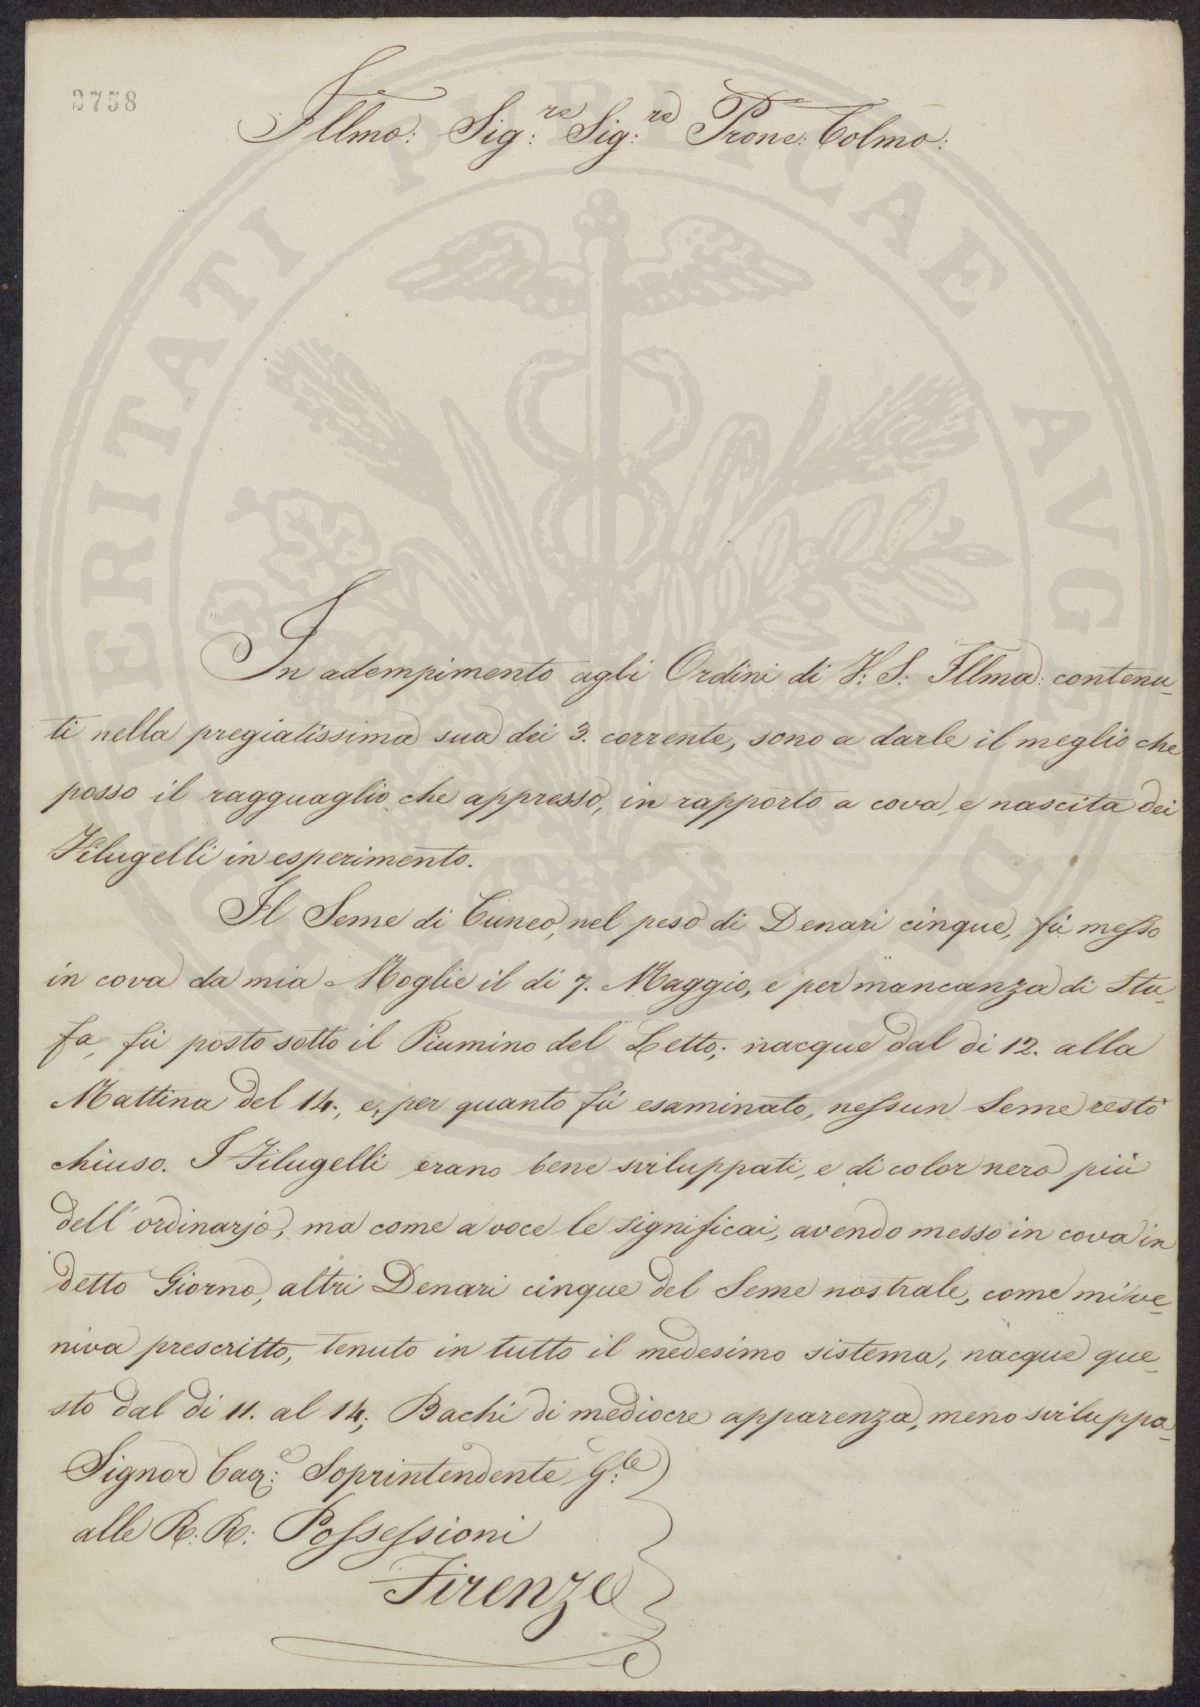 3758
Illmo: Sig:re Sig:re Prone: Colmo:
In adempimento agli Ordini di V: S: Illma: contenu-
ti nella pregiatissima sua dei 3. corrente, sono a darle il meglio che
posso il ragguaglio che appresso, in rapporto a cova, e nascita dei
Filugelli in esperimento.
Il Seme di Cuneo, nel peso di Denari cinque, fù messo
in cova da mia Moglie il dì 7. Maggio, e per mancanza di Stu-
fa, fù posto sotto il Piumino del Letto; nacque dal dì 12. alla
Mattina del 14., e, per quanto fù esaminato, nessun Seme restò
chiuso. I Filugelli erano bene sviluppati, e di color nero più
dell'ordinarjo, ma come a voce le significai, avendo messo in cova in
detto Giorno, altri Denari cinque del Seme nostrale, come mi ve-
niva prescritto, tenuto in tutto il medesimo sistema, nacque que-
sto dal dì 11. al 14; Bachi di mediocre apparenza, meno sviluppa-
Signor Caq:e Soprintendente G:le
alle R: R: Possessioni
Firenze
PROSPERITATI PUBLICAE AVGENDAE